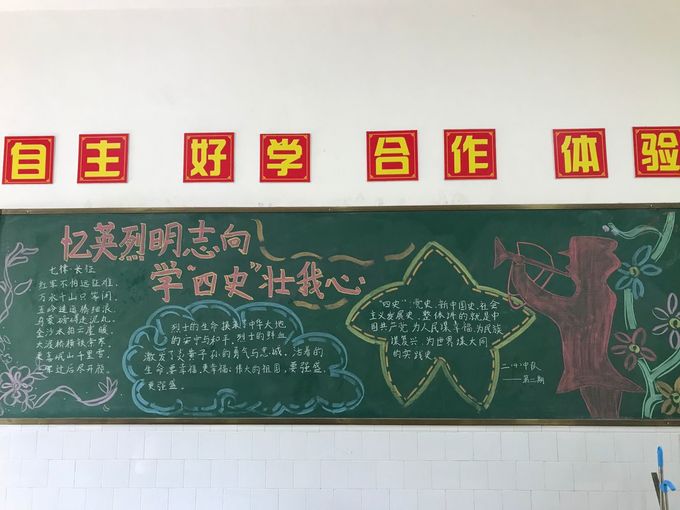 自主 好学 合作 体验
忆英烈明志向
学“四史”壮我心
七律·长征
红军不怕远征难,
万水千山只等闲。
五岭逶迤腾细浪,
乌蒙磅礴走泥丸。
金沙水拍云崖暖,
大渡桥横铁索寒。
更喜岷山千里雪,
三军过后尽开颜。
烈士的生命换来了中华大地
的安宁与和平,烈士的鲜血
激发了炎黄子孙的勇气与忠诚,活着的
生命,要幸福,更幸福;伟大的祖国,要强盛,
更强盛。
“四史”:党史、新中国史、社会
主义发展史,整体讲的就是中
国共产党为人民谋幸福、为民族
谋复兴、为世界谋大同
的实践史。
中队
——第二期